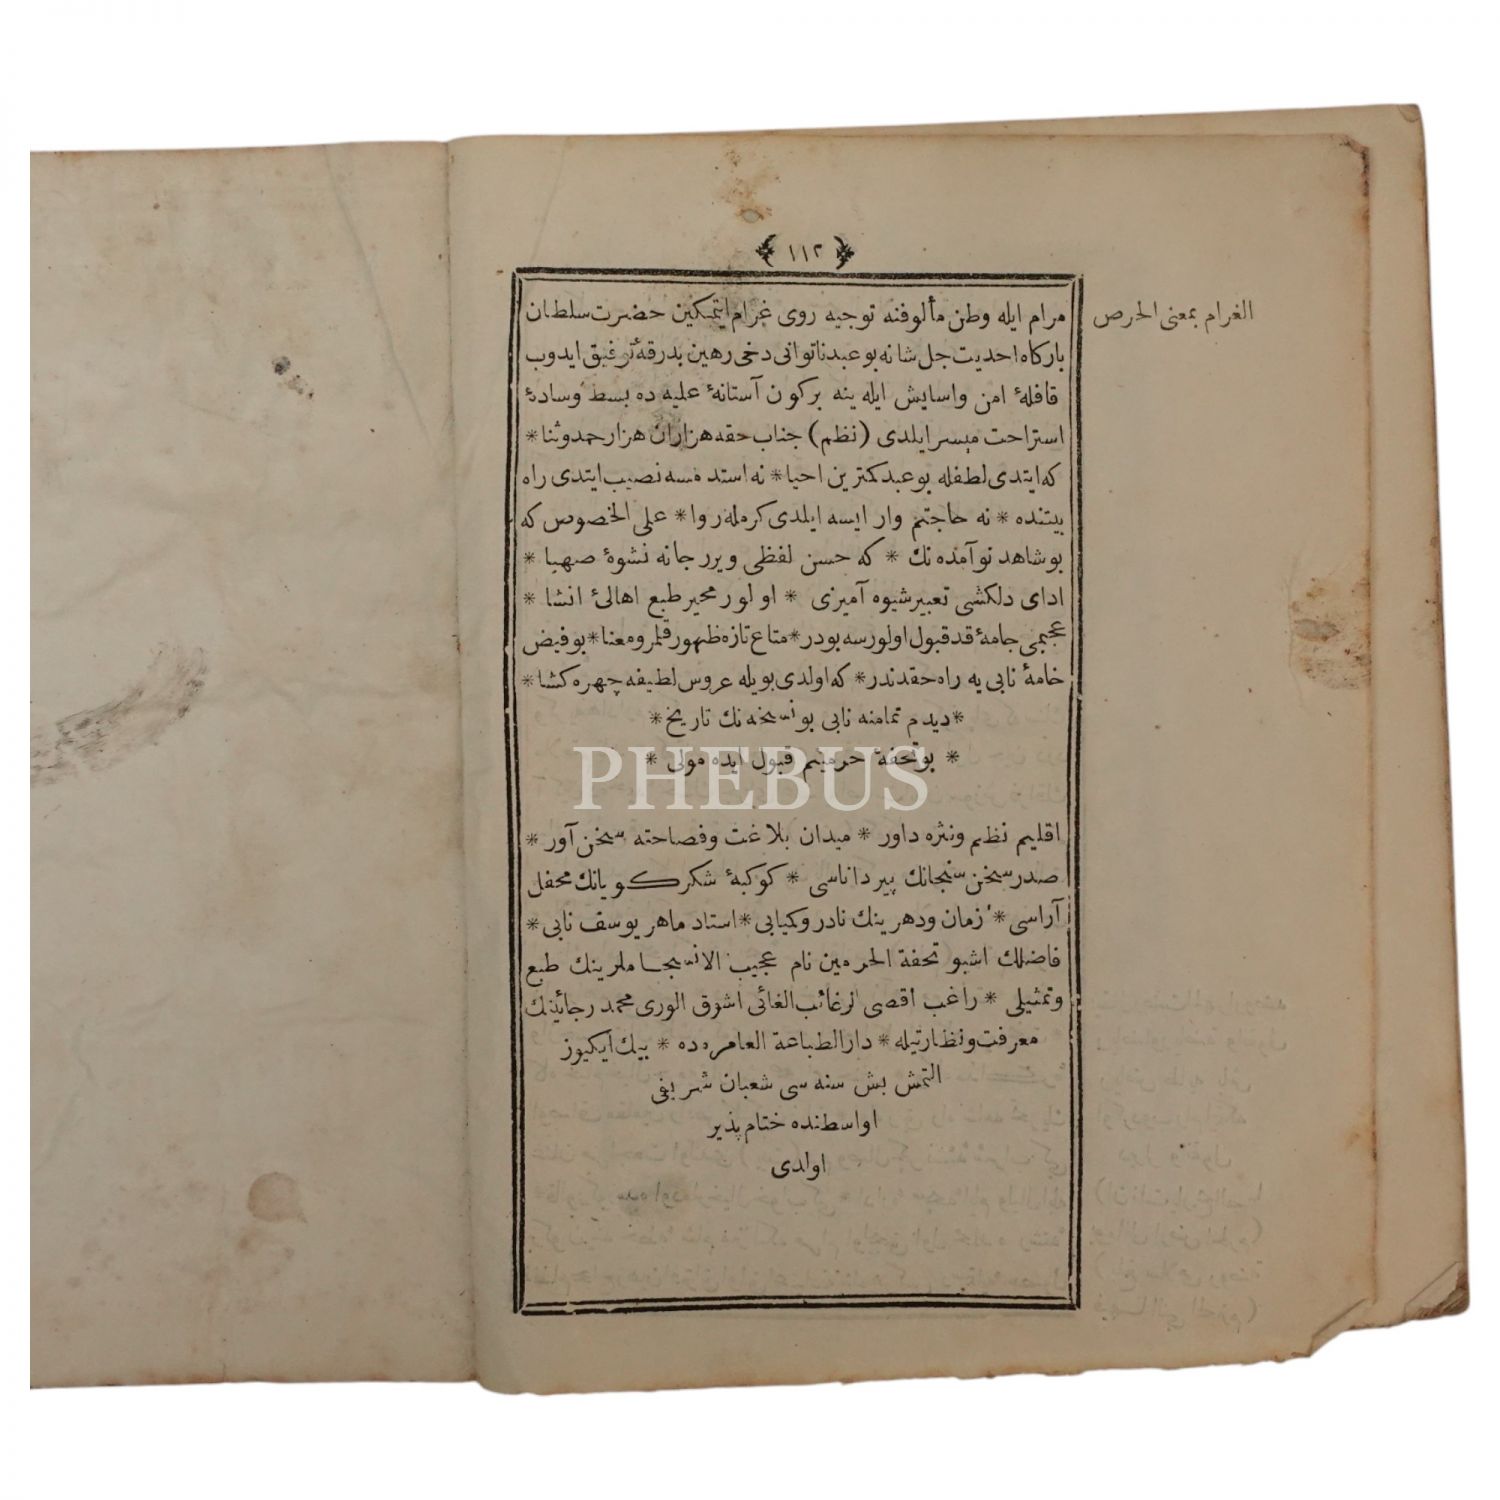 ﴿ ١١٢ ﴾
مرام ايله وطن مألوفنه توجيه روى غرام ايتمكين حضرت سلطان
الغرام بمعنى الحرص
باركاه احديت جل شانه بو عبد ناتوانى دخى رهين بدرقهٔ توفيق ايدوب
قافلهٔ امن واسايش ايله ينه بركون آستانهٔ عليه ده بسط وسادهٔ
استراحت ميسر ايلدى (نظم) جناب حقه هزاران هزار حمد وثنا *
كه ايتدى لطفله بو عبد كمترين احيا * نه استدمسه نصيب ايتدى راه
بيتنده * نه حاجتم وار ايسه ايلدى كرمله روا * على الخصوص كه
بو شاهد نو آمده نك * كه حسن لفظى ويرر جانه نشوهٔ صهبا *
اداى دلكشى تعبير شيوه آميزى * اولور محير طبع اهالئ انشا *
عجيمى جامهٔ قد قبول اولورسه بودر * متاع تازه ظهور قلمرو معنا * بو فيض
خامهٔ نابى يه راه حقدندر * كه اولدى بويله عروس لطيفه چهره كشا *
* ديدم تمامنه نابى بو نسخه نك تاريخ *
* بو تحفهٔ حرمينم قبول ايده مولى *
PHEBUS
اقليم نظم ونثره داور * ميدان بلاغت وفصاحته سخن آور *
صدر سخن سنجانك پير داناسى * كوكبهٔ شكر كويانك محفل
آراسى * زمان ودهرينك نادر وكميابى * استاد ماهر يوسف نابى *
فاضلك اشبو تحفة الحرمين نام عجيب الانسجاملرينك طبع
وتمثيلى * راغب اقصى الرغائب الغائى اشوق الورى محمد رجائينك
معرفت ونظارتيله * دار الطباعة العامره ده * بيك ايكيوز
التمش بش سنه سى شعبان شريفى
اواسطنده ختام پذير
اولدى